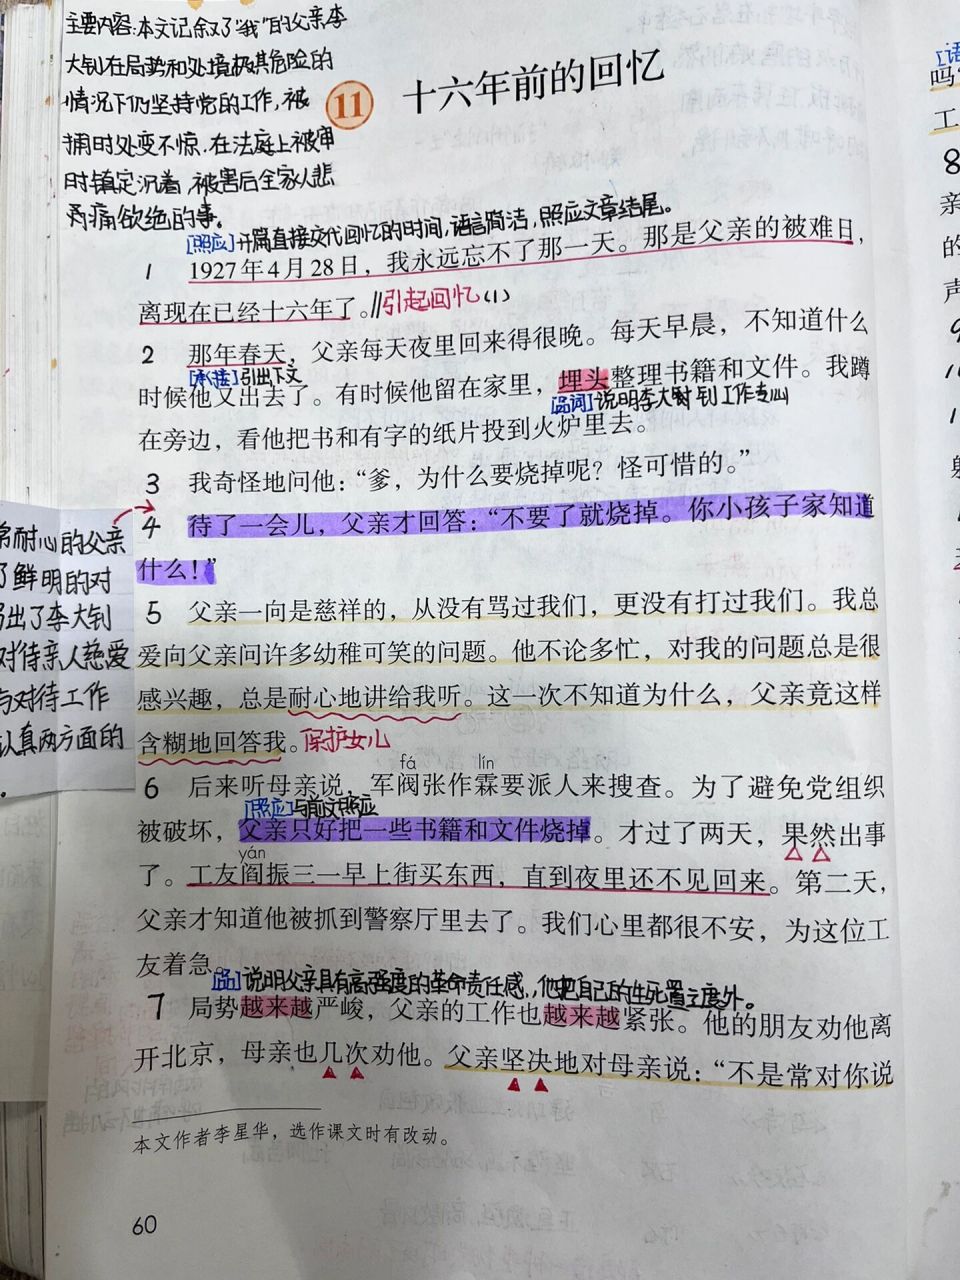 主要内容:本文记叙了“我”的父亲李
大钊在局势和处境极其危险的
情况下仍坚持党的工作,被
捕时处变不惊,在法庭上被审
时镇定沉着,被害后全家人悲
痛欲绝的事。
11 十六年前的回忆
[照应]开篇直接交代回忆的时间,语言简洁,照应文章结尾。
1 1927年4月28日,我永远忘不了那一天。那是父亲的被难日,
离现在已经十六年了。//引起回忆(1)
2 那年春天,父亲每天夜里回来得很晚。每天早晨,不知道什么
[承接]引出下文
时候他又出去了。有时候他留在家里,埋头整理书籍和文件。我蹲
[品词]说明李大钊工作专心
在旁边,看他把书和有字的纸片投到火炉里去。
3 我奇怪地问他:“爹,为什么要烧掉呢?怪可惜的。”
4 待了一会儿,父亲才回答:“不要了就烧掉。你小孩子家知道
什么!”
常耐心的父亲
了鲜明的对
出了李大钊
对待亲人慈爱
与对待工作
认真两方面的
5 父亲一向是慈祥的,从没有骂过我们,更没有打过我们。我总
爱向父亲问许多幼稚可笑的问题。他不论多忙,对我的问题总是很
感兴趣,总是耐心地讲给我听。这一次不知道为什么,父亲竟这样
含糊地回答我。保护女儿
fá lín
6 后来听母亲说,军阀张作霖要派人来搜查。为了避免党组织
[照应]与前文照应
被破坏,父亲只好把一些书籍和文件烧掉。才过了两天,果然出事
yán
了。工友阎振三一早上街买东西,直到夜里还不见回来。第二天,
父亲才知道他被抓到警察厅里去了。我们心里都很不安,为这位工
友着急。
[品]说明父亲具有高强度的革命责任感,他把自己的生死置之度外。
7 局势越来越严峻,父亲的工作也越来越紧张。他的朋友劝他离
开北京,母亲也几次劝他。父亲坚决地对母亲说:“不是常对你说
本文作者李星华,选作课文时有改动。
60
[语
吗
工
8
亲
的
声